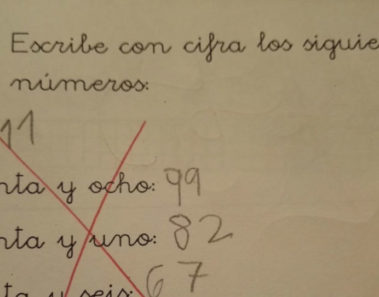 Escribe con cifra los siguie
números:
11
nta y ocho: 99
nta y uno: 82
ta y seis: 67